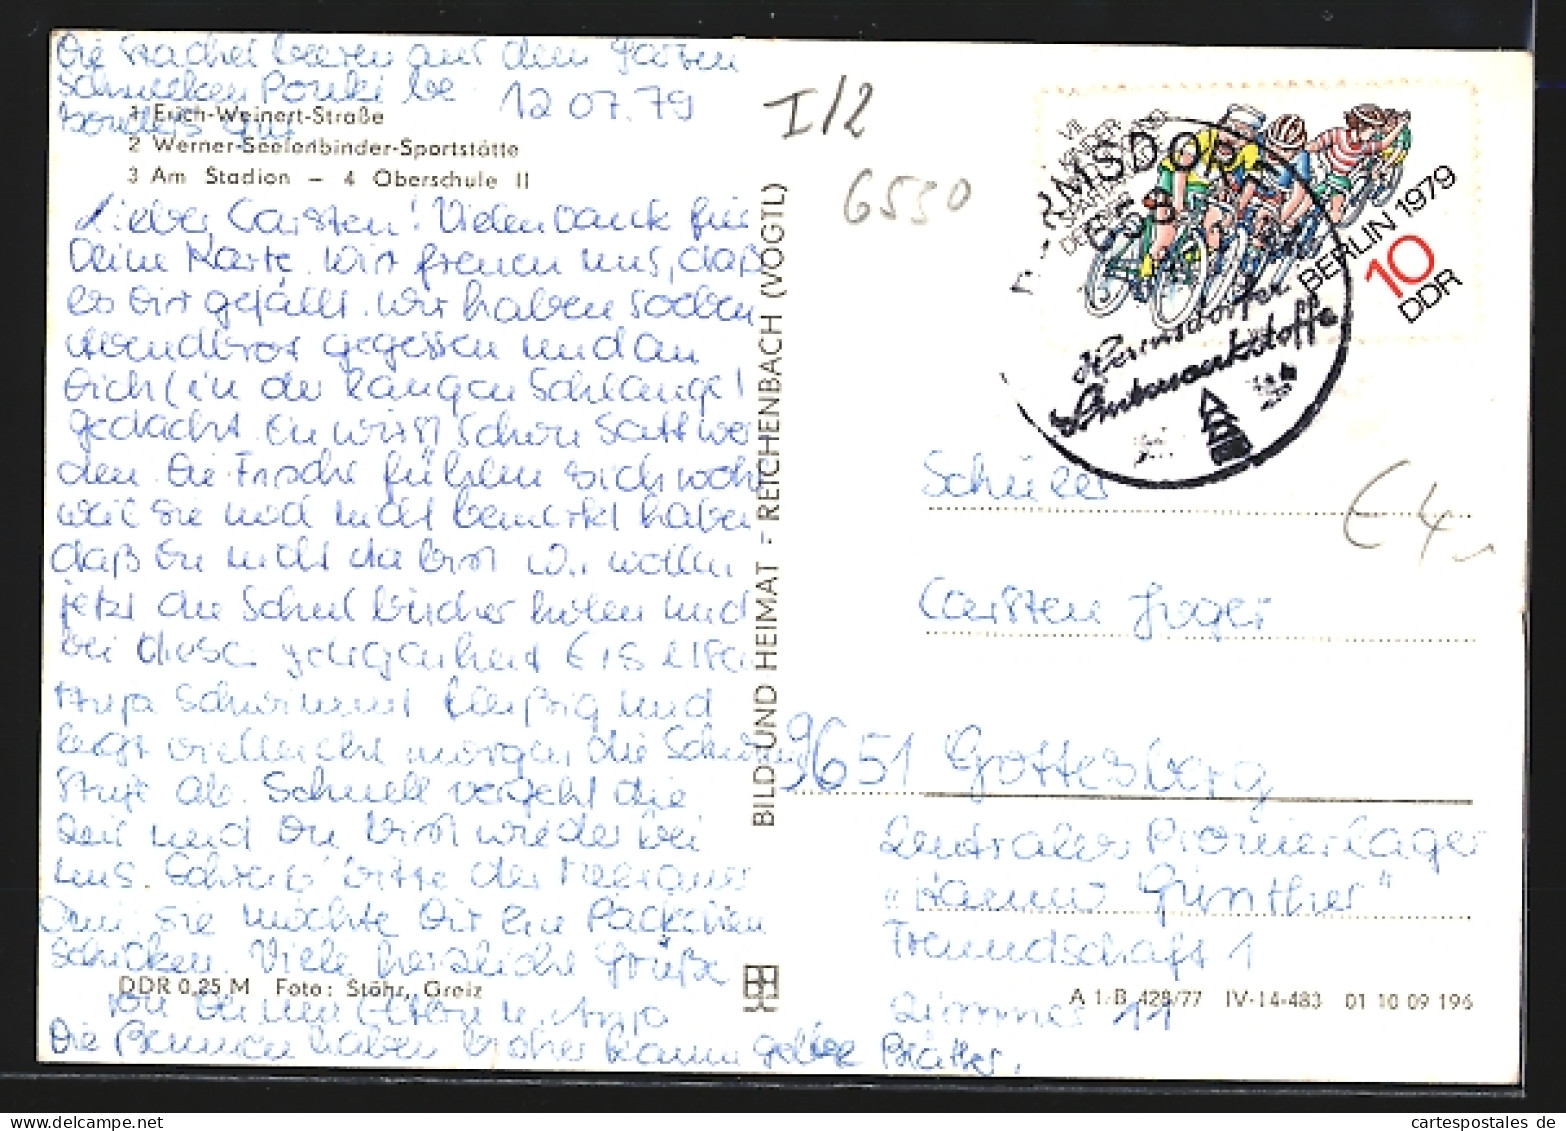 Die Stachelbeeren aus dem Garten
schmecken Ponki be
sonders gut
12 07.79
1 Erich-Weinert-Straße
2 Werner-Seelenbinder-Sportstätte
3 Am Stadion – 4 Oberschule II
Lieber Carsten! Vielen Dank für
Deine Karte. Wir freuen uns, daß
es Dir gefällt. Wir haben soeben
Abendbrot gegessen und an
Dich (in der langen Schlange!
gedacht. Du wirst schon satt wer
den. Die Frösche fühlen sich wohl
weil sie noch nicht bemerkt haben
daß Du nicht da bist. Wir wollen
jetzt die Schulbücher holen und
bei dieser Gelegenheit Eis essen
Anja schwimmt fleißig und
legt vielleicht morgen die Schwimm
stufe ab. Schnell vergeht die
Zeit und Du bist wieder bei
uns. Schreib bitte der Meeraner
Omi. Sie möchte Dir ein Päckchen
schicken. Viele herzliche Grüße
DDR 0,25 M Foto: Stöhr, Greiz
von Deinen Eltern u. Anja
Die Bäumen haben bisher kaum gelbe Blätter.
BILD UND HEIMAT - REICHENBACH (VOGTL)
I/2
6530
VII.
KINDER-
BERLIN 1979
10
DDR
RMSDORF
653
Hermsdorfer
Schüler
€ 4,-
Carsten Jugel
9651 Gottesberg
Zentrales Pionierlager
"Hanno Günther"
Freundschaft 1
Zimmer 11
A 1/B 428/77 IV-14-483 01 10 09 196
cartespostales de